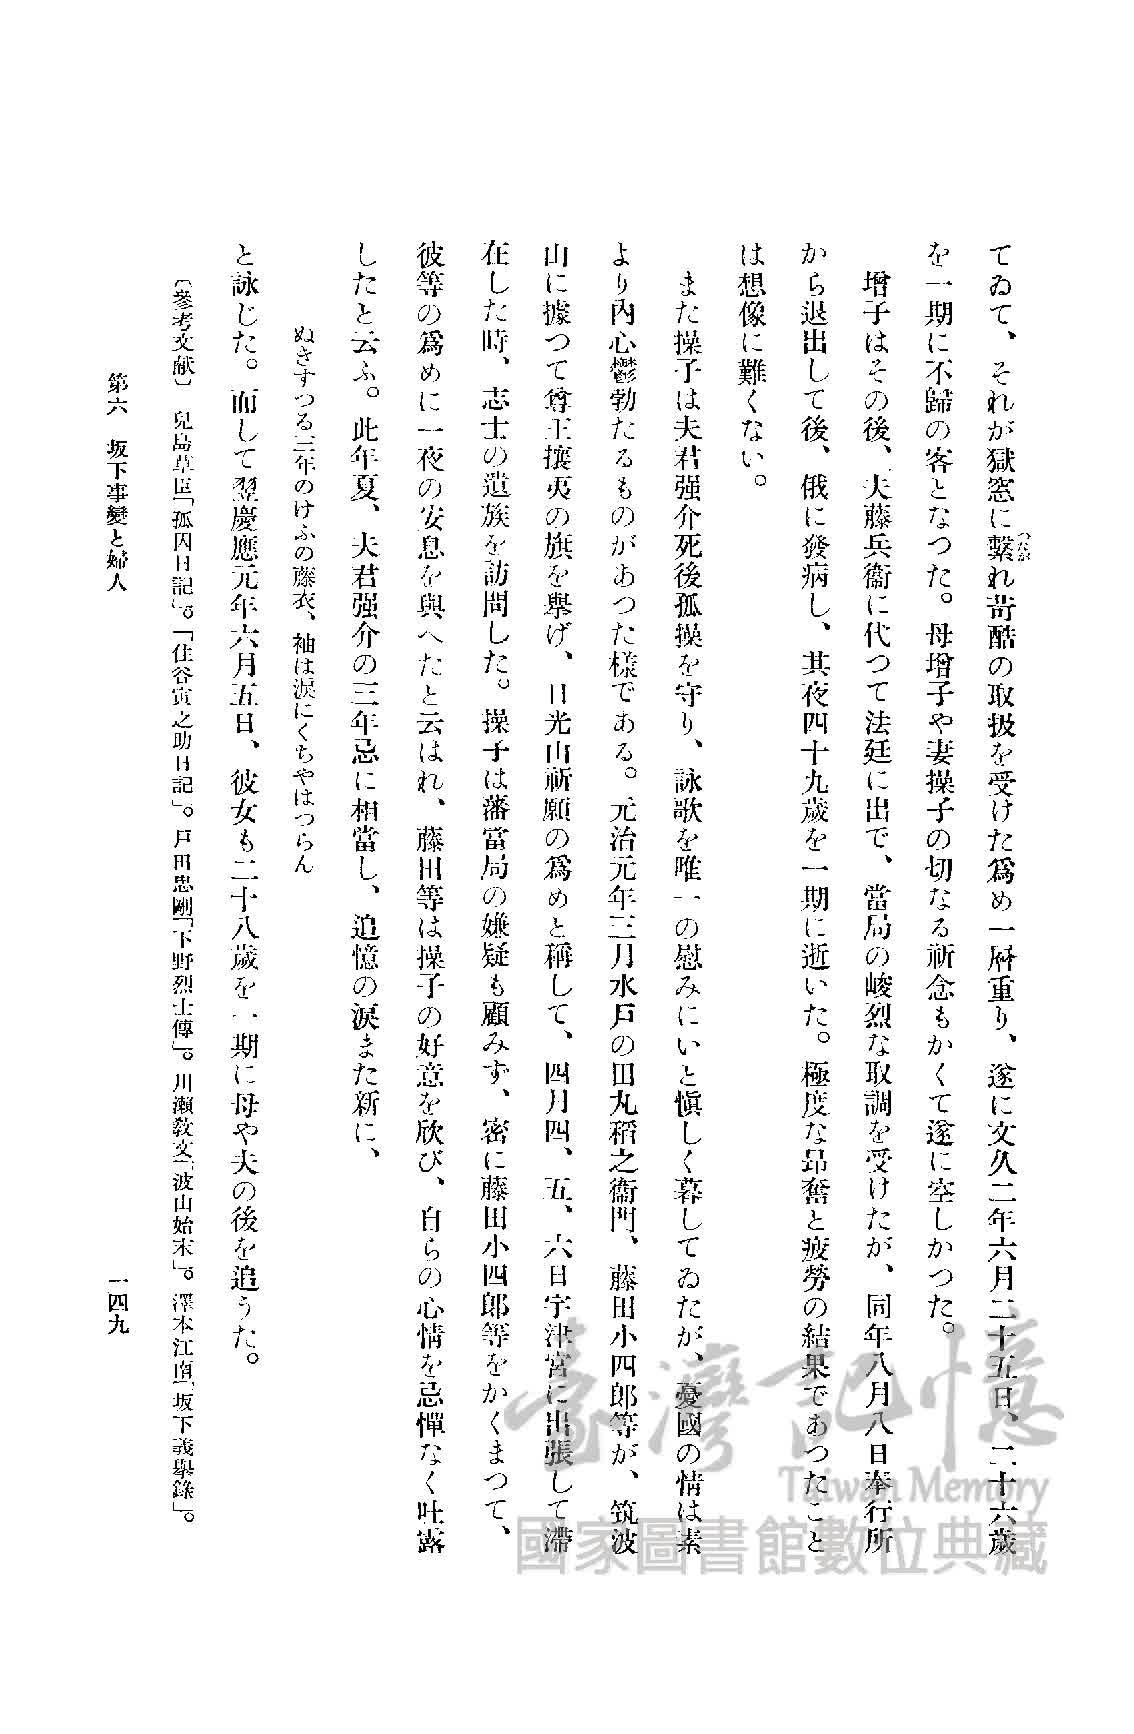 てゐて、それが獄窓に繋れ苛酷の取扱を受けた爲め一層重り、遂に文久二年六月二十五日、二十六歲
つたが
を一期に不歸の客となつた。母增子や妻操子の切なる祈念もかくて遂に空しかつた。
增子はその後、夫藤兵衞に代つて法廷に出で、當局の峻烈な取調を受けたが、同年八月八日奉行所
から退出して後、俄に發病し、其夜四十九歲を一期に逝いた。極度な昂奮と疲勞の結果であつたこと
は想像に難くない。
また操子は夫君强介死後孤操を守り、詠歌を唯一の慰みにいと愼しく暮してゐたが、憂國の情は素
より內心鬱勃たるものがあつた樣である。元治元年三月水戶の田丸稻之衞門、藤田小四郎等が、筑波
山に據つて尊王攘夷の旗を擧げ、日光山祈願の爲めと稱して、四月四、五、六日宇津宮に出張して滯
在した時、志士の遺族を訪問した。操子は藩當局の嫌疑も顧みず、密に藤田小四郎等をかくまつて、
彼等の爲めに一夜の安息を與へたと云はれ、藤田等は操子の好意を欣び、自らの心情を忌憚なく吐露
したと云ふ。此年夏、夫君强介の三年忌に相當し、追憶の淚また新に、
ぬきすつる三年のけふの藤衣、袖は淚にくちやはつらん
と詠じた。而して翌慶應元年六月五日、彼女も二十八歲を一期に母や夫の後を追うた。
〔參考文献〕 兒島草臣「孤囚日記」。「住谷寅之助日記」。戶田忠剛「下野烈士傳」。川瀨敎文「波山始末」。澤本江南「坂下義擧錄」。
第六 坂下事變と婦人
一四九
臺灣記憶
Taiwan Memory
國家圖書館數位典藏